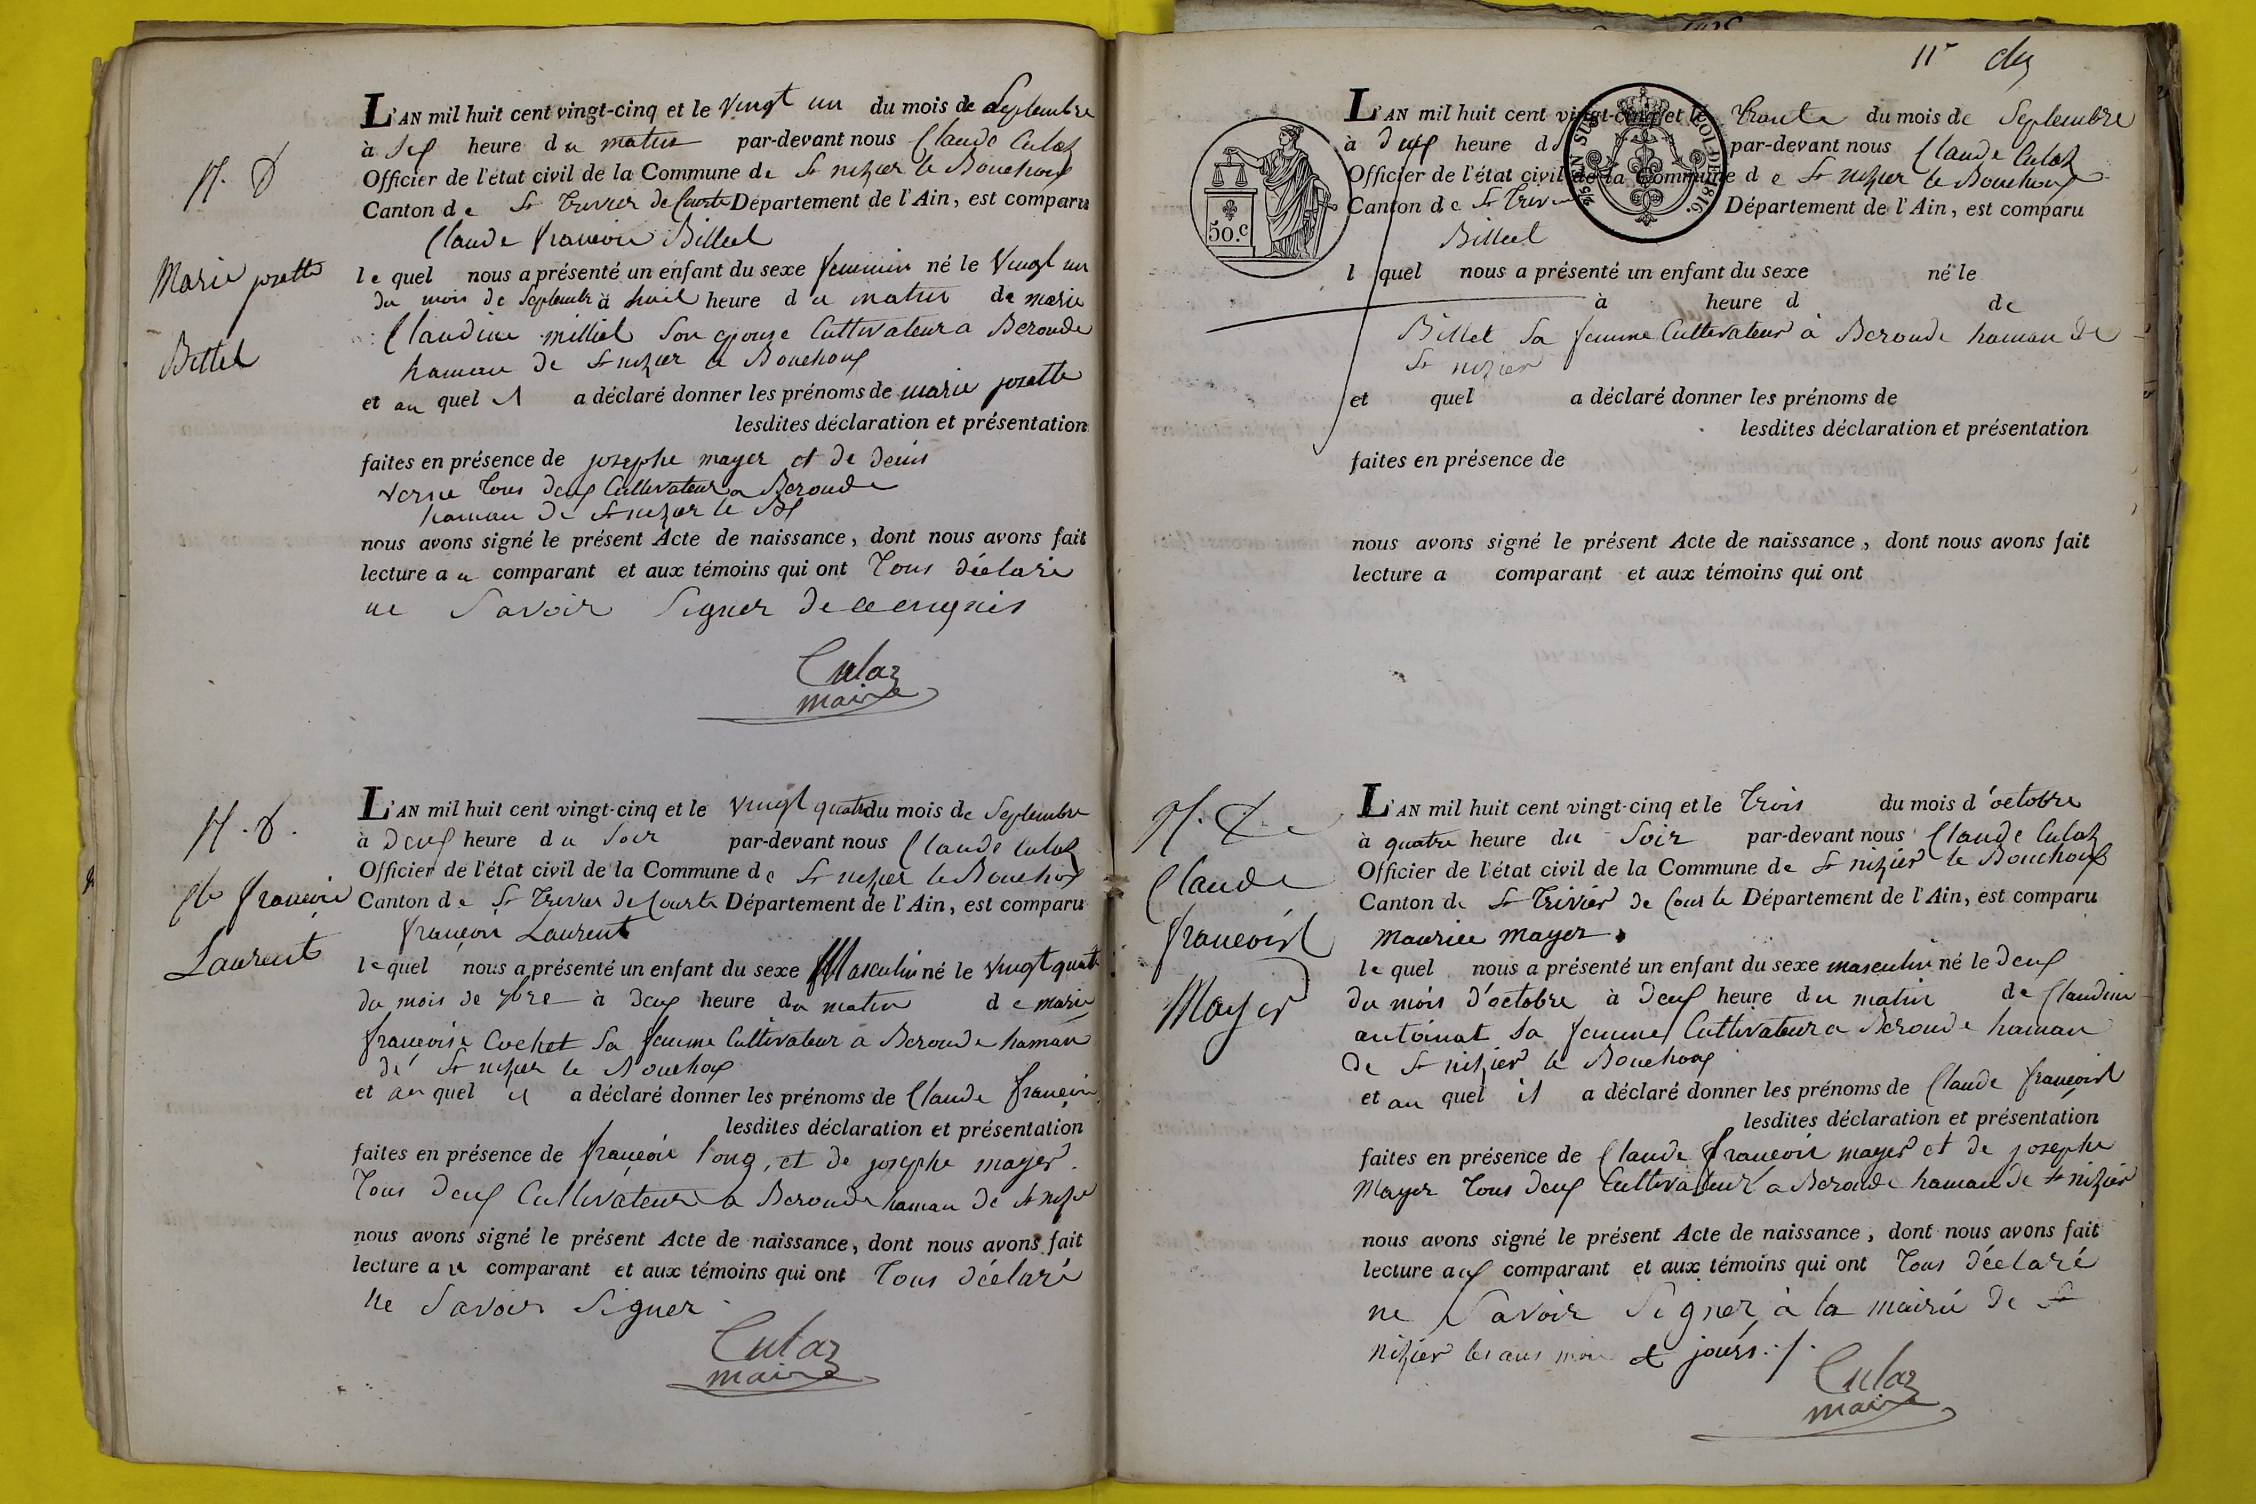 N. d
Marie josette
Billet
L'AN mil huit cent vingt-cinq et le Vingt un du mois de Septembre
à heure du matin par-devant nous Claude Culaz
Officier de l'état civil de la Commune de St nizier le Bouchoux
Canton de St Trivier de Courte Département de l'Ain, est comparu
Claude francois Billiet
le quel nous a présenté un enfant du sexe feminin né le Vingt un
du mois de Septembr à huit heure du matin de marie
Claudine milliet Son epouse Cultivateur a Beroude
hamau de St nizier le Bouchoux
et au quel il a déclaré donner les prénoms de marie josette
lesdites déclaration et présentation
faites en présence de josephe mayer et de denis
verne tous deux Cultivateur a Beroude
hamau de St nizier le
nous avons signé le présent Acte de naissance, dont nous avons fait
lecture au comparant et aux témoins qui ont Tous déclaré
ne Savoir Signer de ce enquis
Culaz
maire
N. d.
Cde francois
Laurent
L'AN mil huit cent vingt-cinq et le vingt quatre du mois de Septembre
à deux heure du Soir par-devant nous Claude Culaz
Officier de l'état civil de la Commune de St nizier le Bouchoux
Canton de St Trivier de Courte Département de l'Ain, est comparu
françois Laurent
le quel nous a présenté un enfant du sexe Masculin né le vingt quatr
du mois de 7bre à deux heure du matin de marie
françoise Cochet Sa femme Cultivateur a Beroude hamau
de St nizier le Bouchoux
et au quel il a déclaré donner les prénoms de Claude françois
lesdites déclaration et présentation
faites en présence de françois long, et de josephe mayer.
Tous deux Cultivateur a Beroude hamau de St nizie
nous avons signé le présent Acte de naissance, dont nous avons fait
lecture au comparant et aux témoins qui ont Tous déclaré
ne Savoir Signer
Culaz
maire
11e
50.c
LOI DE 1816.
L'AN mil huit cent vingt-cinq et le Trente du mois de Septembre
à deux heure d par-devant nous Claude Culaz
Officier de l'état civil de la Commune de St nizier le Bouchoux
Canton de St Triv Département de l'Ain, est comparu
Billiet
l quel nous a présenté un enfant du sexe né le
à heure d de
Billet Sa femme Cultivateur à Beroude hamau de
St nizier
et quel a déclaré donner les prénoms de
lesdites déclaration et présentation
faites en présence de
nous avons signé le présent Acte de naissance, dont nous avons fait
lecture a comparant et aux témoins qui ont
N. d
Claude
francoist
Mayer
L'AN mil huit cent vingt-cinq et le Trois du mois d'octobre
à quatre heure du Soir par-devant nous Claude Culaz
Officier de l'état civil de la Commune de St nizier le Bouchoux
Canton de St Trivier de Courte Département de l'Ain, est comparu
Maurice mayer.
le quel nous a présenté un enfant du sexe masculin né le deux
du mois d'octobre à deux heure du matin de Claudine
antoinat Sa femme Cultivateur a Beroude hamau
de St nizier le Bouchoux
et au quel il a déclaré donner les prénoms de Claude francoist
lesdites déclaration et présentation
faites en présence de Claude françois mayer et de josephe
Mayer Tous deux Cultivateur a Beroude hamau de St nizier
nous avons signé le présent Acte de naissance, dont nous avons fait
lecture aux comparant et aux témoins qui ont Tous déclaré
ne Savoir Signer, à la mairie de St
nizier les ans mois et jours./.
Culaz
maire